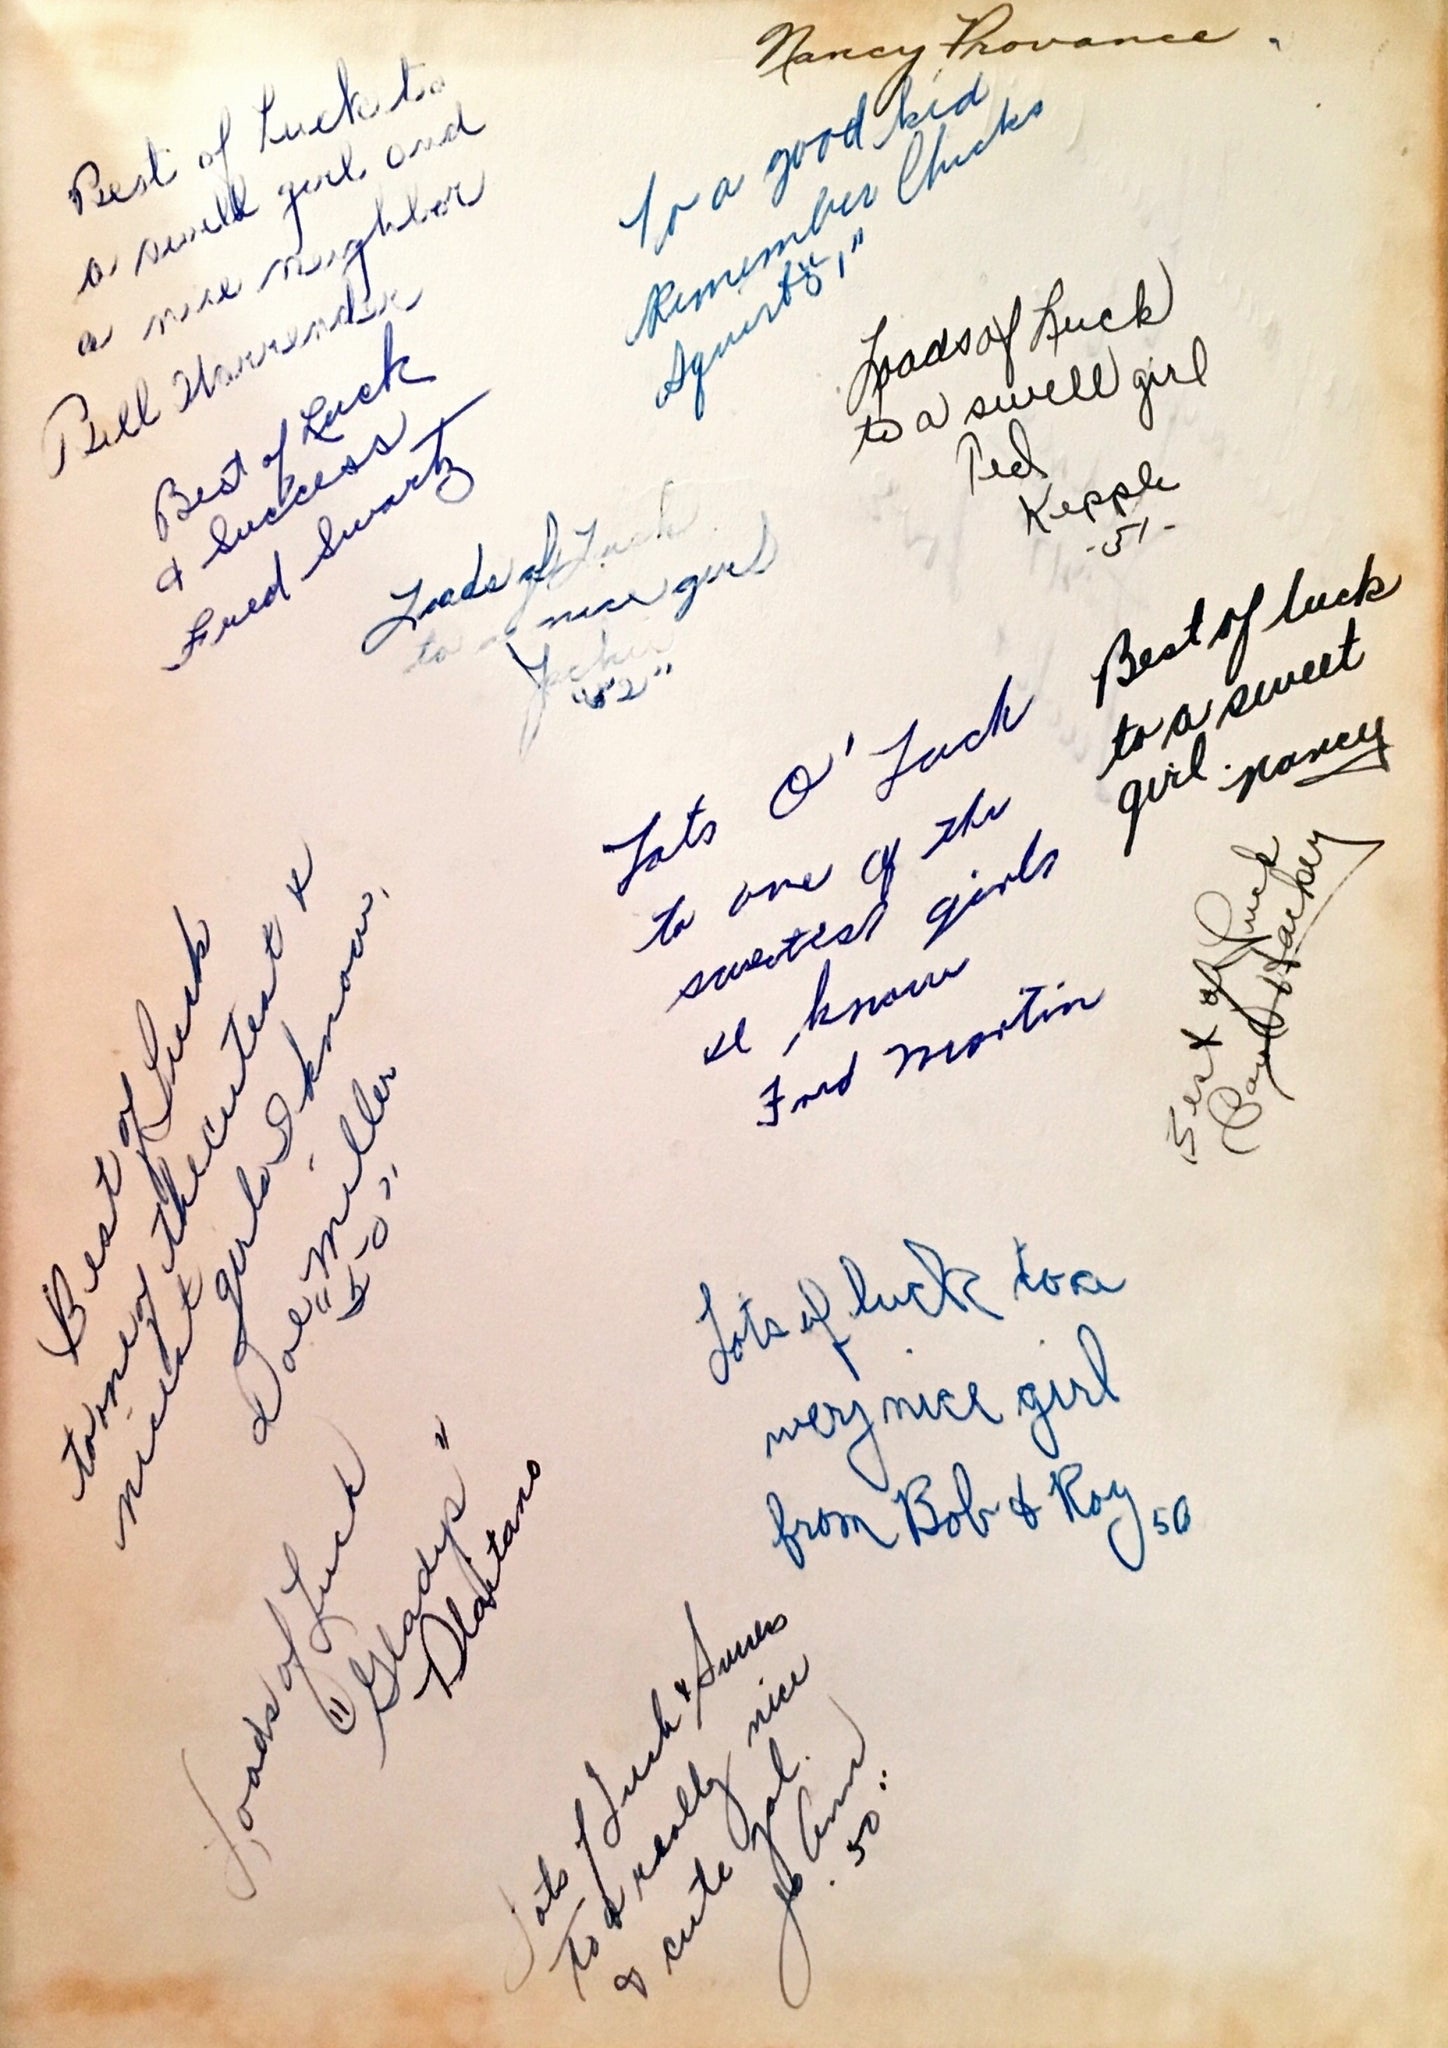 Nancy Provance.
Best of Luck to
a swell girl and
a nice neighbor
Bill
To a good kid
Remember Chucks
Squirts
"51"
Best of Luck
& Success
Fred Swartz
Loads of Luck
to a swell girl
Ted
Kepple
-51-
Loads of Luck
to a nice girl
Jackie
"52"
Best of luck
to a sweet
girl. Nancy
Lots O' Luck
to one of the
sweetest girls
I know
Fred Martin
Best of Luck
Paul Hackey
Best of Luck
to one of the cutest &
nicest girls I know.
Doe Miller
"50"
Lots of luck to a
very nice girl
from Bob & Roy 50
Loads of Luck
"Gladys"
Lots of Luck & Success
To a really nice
& cute gal.
Jo Ann
"50"